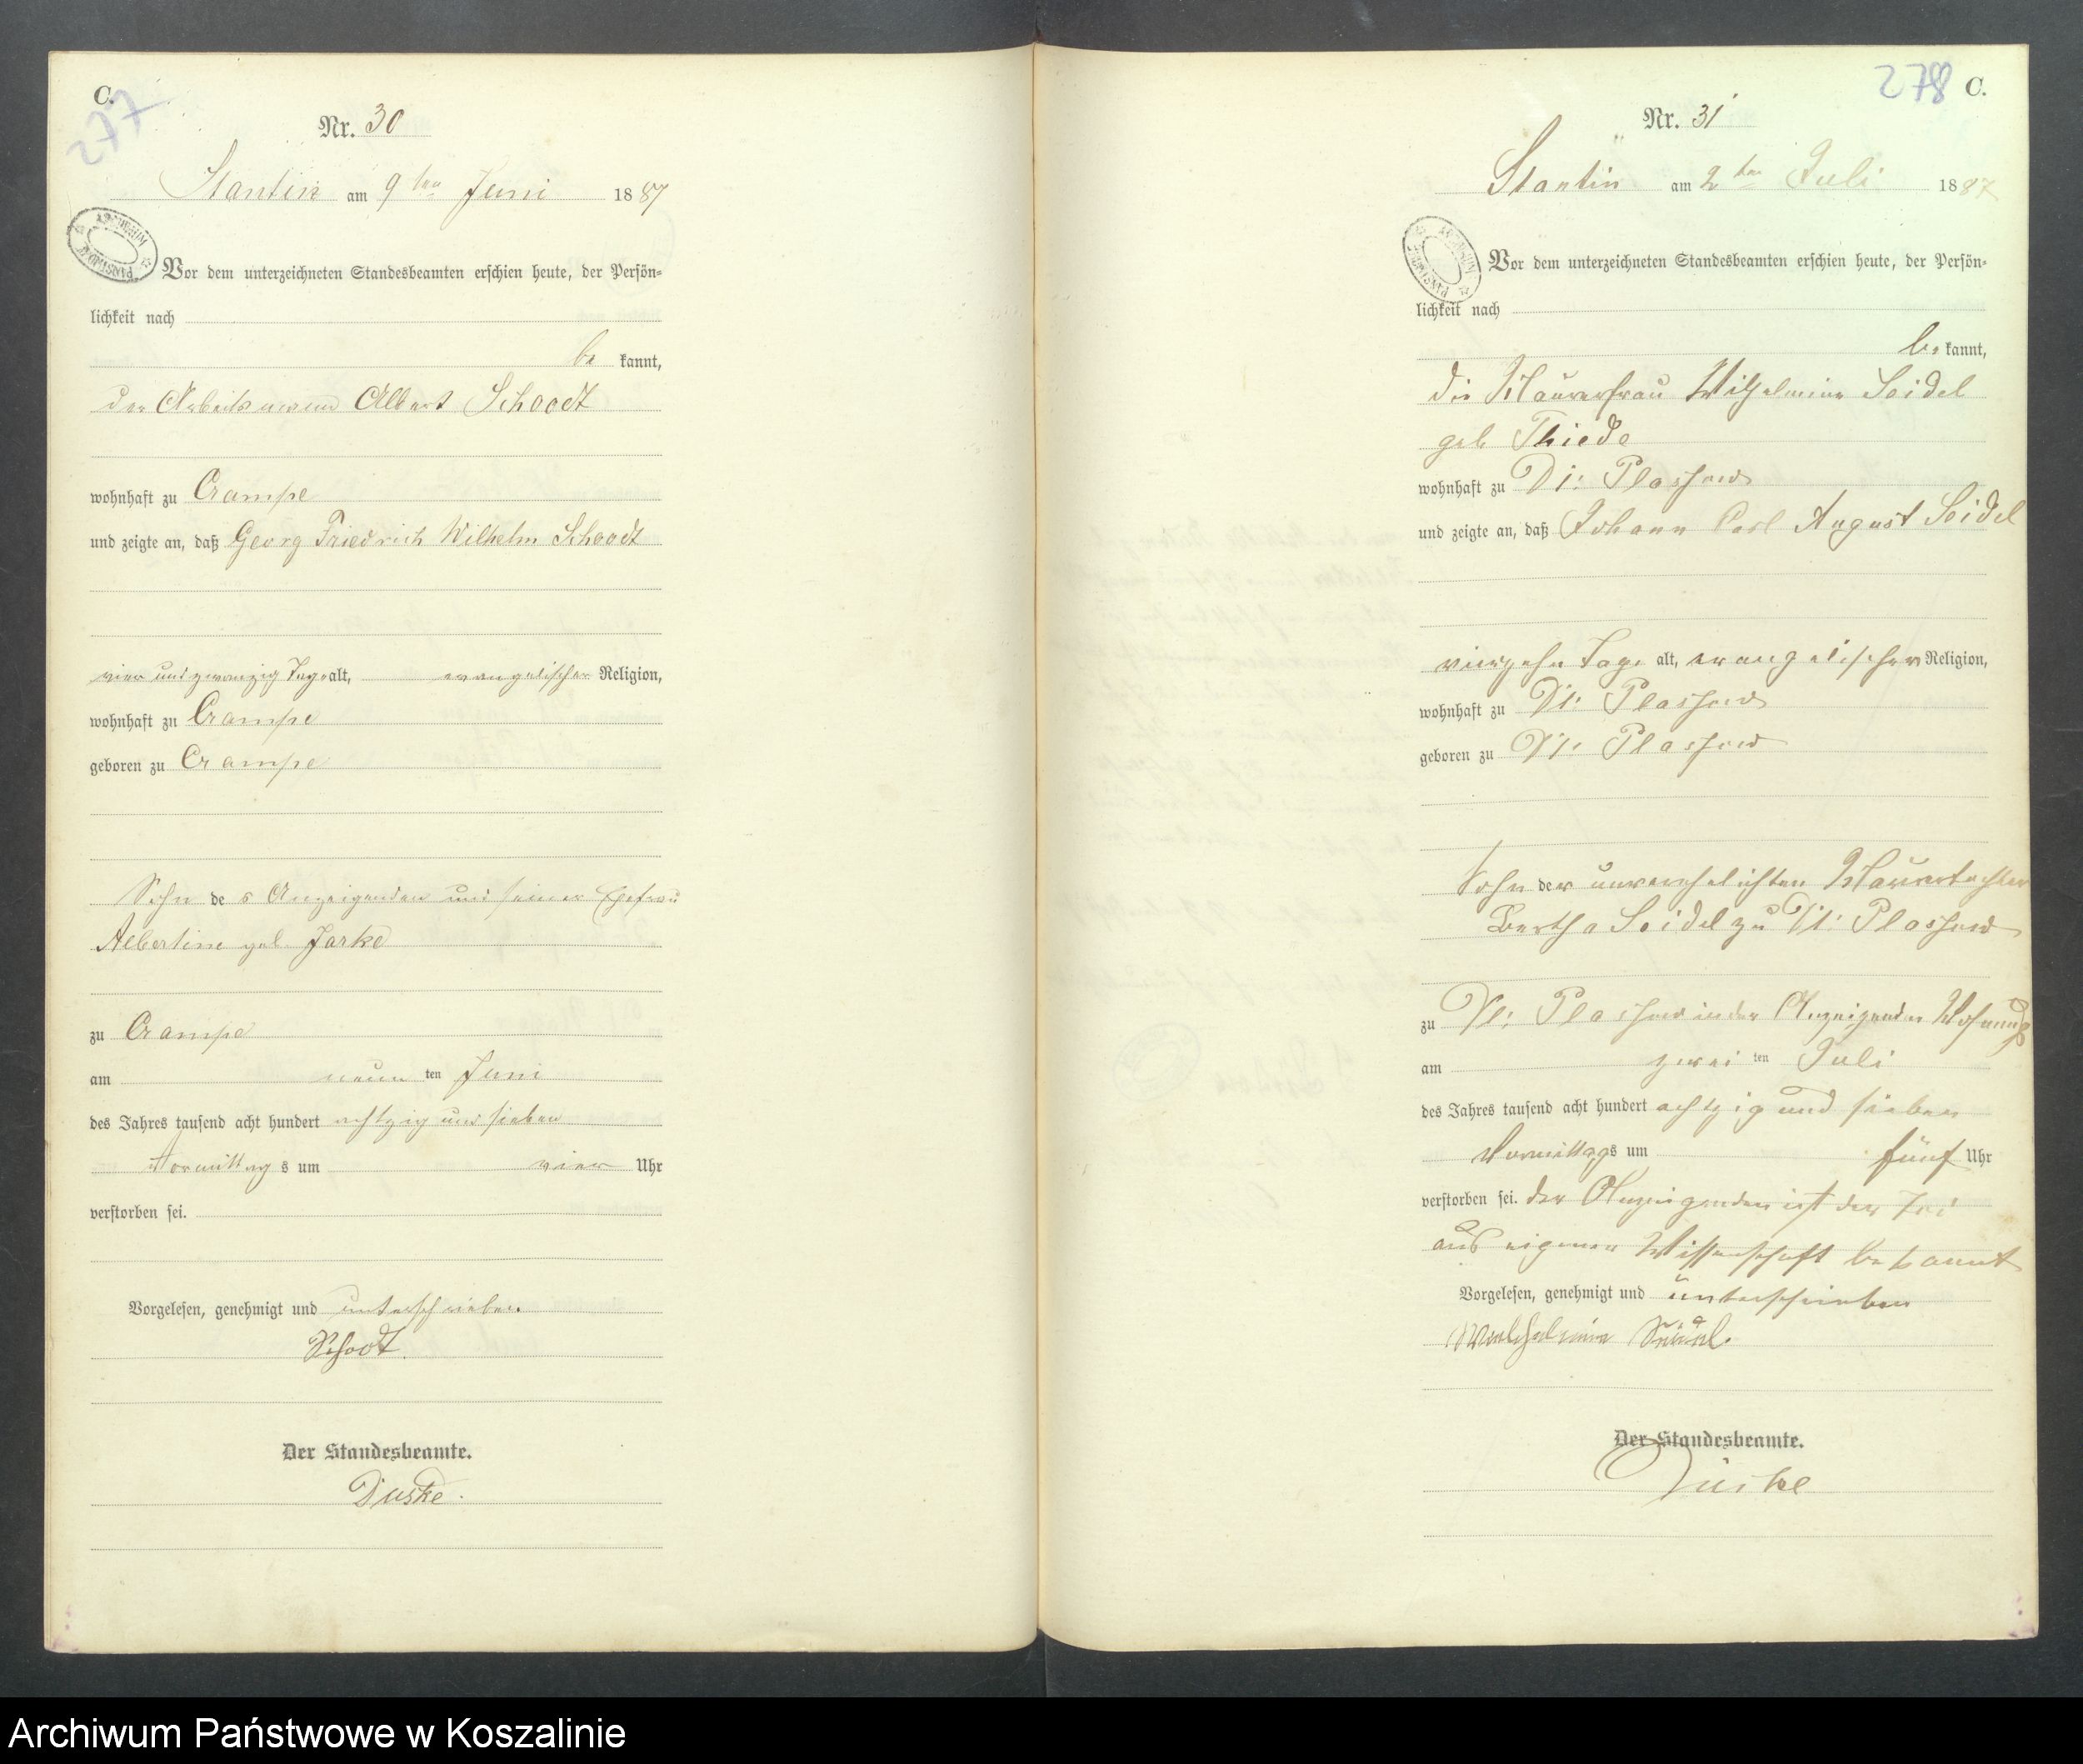 C.
277
Nr. 30
Stantin am 9ten Juni 1887
Vor dem unterzeichneten Standesbeamten erschien heute, der Persön-
lichkeit nach
be kannt,
der Arbeitsmann Albert Schoodt
wohnhaft zu Crampe
und zeigte an, daß Georg Friedrich Wilhelm Schoodt
vier und zwanzig Tage alt, evangelischer Religion,
wohnhaft zu Crampe
geboren zu Crampe
Sohn des Anzeigenden und seiner Ehefrau
Albertine geb. Jarke
zu Crampe
am neun ten Juni
des Jahres tausend acht hundert achtzig und sieben
Vormittags um vier Uhr
verstorben sei.
Vorgelesen, genehmigt und unterschrieben
Schodt
Der Standesbeamte.
Duske.
278 C.
Nr. 31
Stantin am 2ten Juli 1887
Vor dem unterzeichneten Standesbeamten erschien heute, der Persön-
lichkeit nach
be kannt,
die Maurerfrau Wilhelmine Seidel
geb Thiede
wohnhaft zu Dt: Plassow
und zeigte an, daß Johann Carl August Seidel
vierzehn Tage alt, evangelischer Religion,
wohnhaft zu Dt: Plassow
geboren zu Dt: Plassow
Sohn der unverehelichten Maurertochter
Bertha Seidel zu Dt: Plassow
zu Dt: Plassow in der Anzeigenden Wohnung
am zwei ten Juli
des Jahres tausend acht hundert achtzig und sieben
Vormittags um fünf Uhr
verstorben sei. der Anzeigenden ist der
aus eigener Wissenschaft bekannt
Vorgelesen, genehmigt und unterschrieben
Der Standesbeamte.
Duske
Archiwum Państwowe w Koszalinie